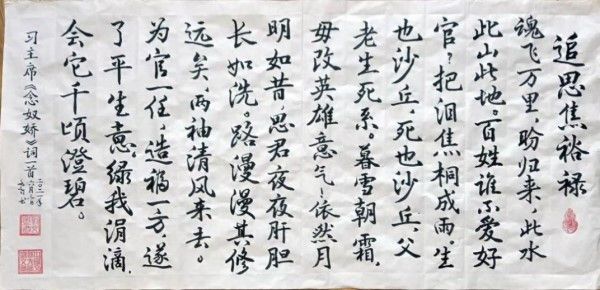 追思焦裕禄
魂飞万里,盼归来,此水
此山此地。百姓谁不爱好
官?把泪焦桐成雨。生
也沙丘,死也沙丘,父
老生死系。暮雪朝霜,
毋改英雄意气!依然月
明如昔,思君夜夜肝胆
长如洗。路漫漫其修
远矣,两袖清风来去。
为官一任,造福一方,遂
了平生意。绿我涓滴,
会它千顷澄碧。
习主席《念奴娇》词一首